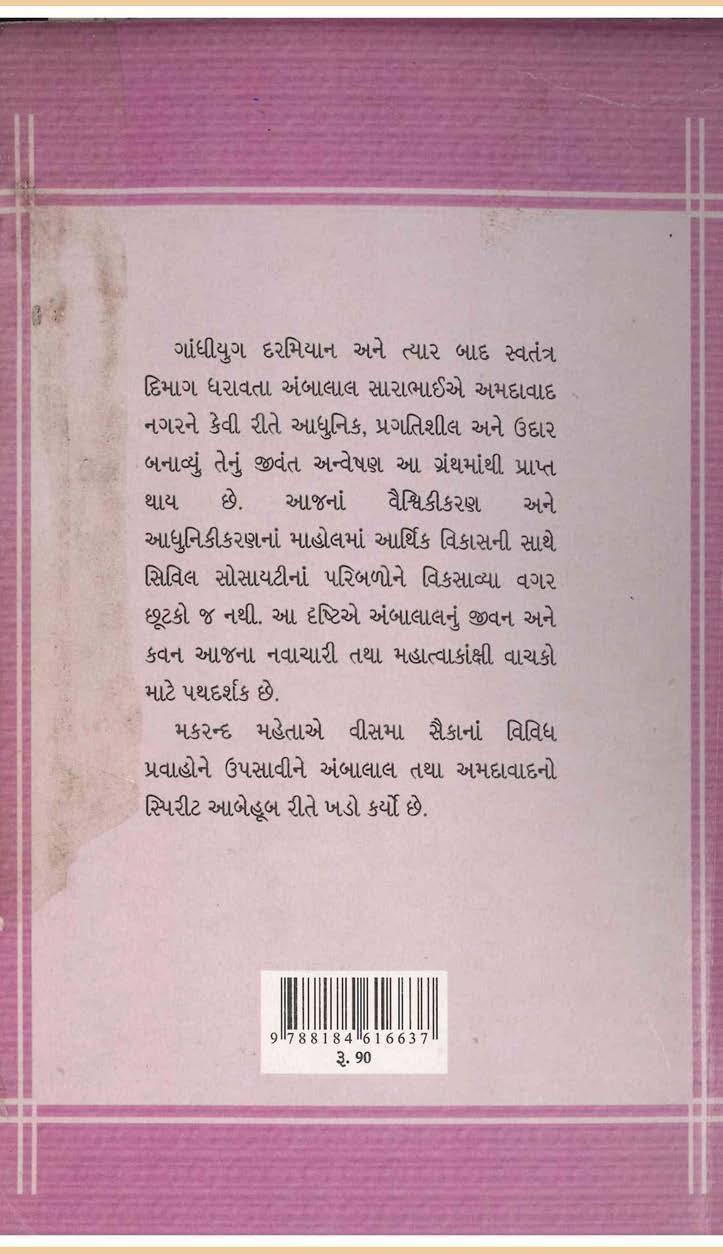 ગાંધીયુગ દરમિયાન અને ત્યાર બાદ સ્વતંત્ર
દિમાગ ધરાવતા અંબાલાલ સારાભાઈએ અમદાવાદ
નગરને કેવી રીતે આધુનિક, પ્રગતિશીલ અને ઉદાર
બનાવ્યું તેનું જીવંત અન્વેષણ આ ગ્રંથમાંથી પ્રાપ્ત
થાય છે. આજનાં વૈશ્વિકીકરણ અને
આધુનિકીકરણનાં માહોલમાં આર્થિક વિકાસની સાથે
સિવિલ સોસાયટીનાં પરિબળોને વિકસાવ્યા વગર
છૂટકો જ નથી. આ દૃષ્ટિએ અંબાલાલનું જીવન અને
કવન આજના નવાચારી તથા મહાત્વાકાંક્ષી વાચકો
માટે પથદર્શક છે.
મકરન્દ મહેતાએ વીસમા સૈકાનાં વિવિધ
પ્રવાહોને ઉપસાવીને અંબાલાલ તથા અમદાવાદનો
સ્પિરીટ આબેહૂબ રીતે ખડો કર્યો છે.
9 788184 616637
રૂ. 90